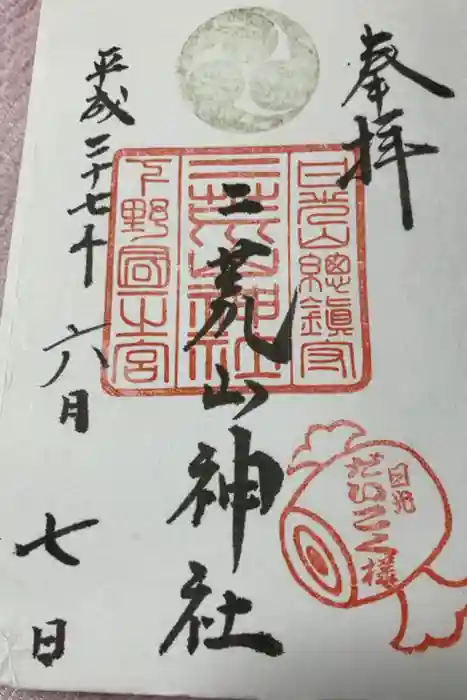 奉拝
日光山總鎮守
二荒山神社
下野國一之宮
二荒山神社
平成二十七年
六月
七日
日光
だいこく様